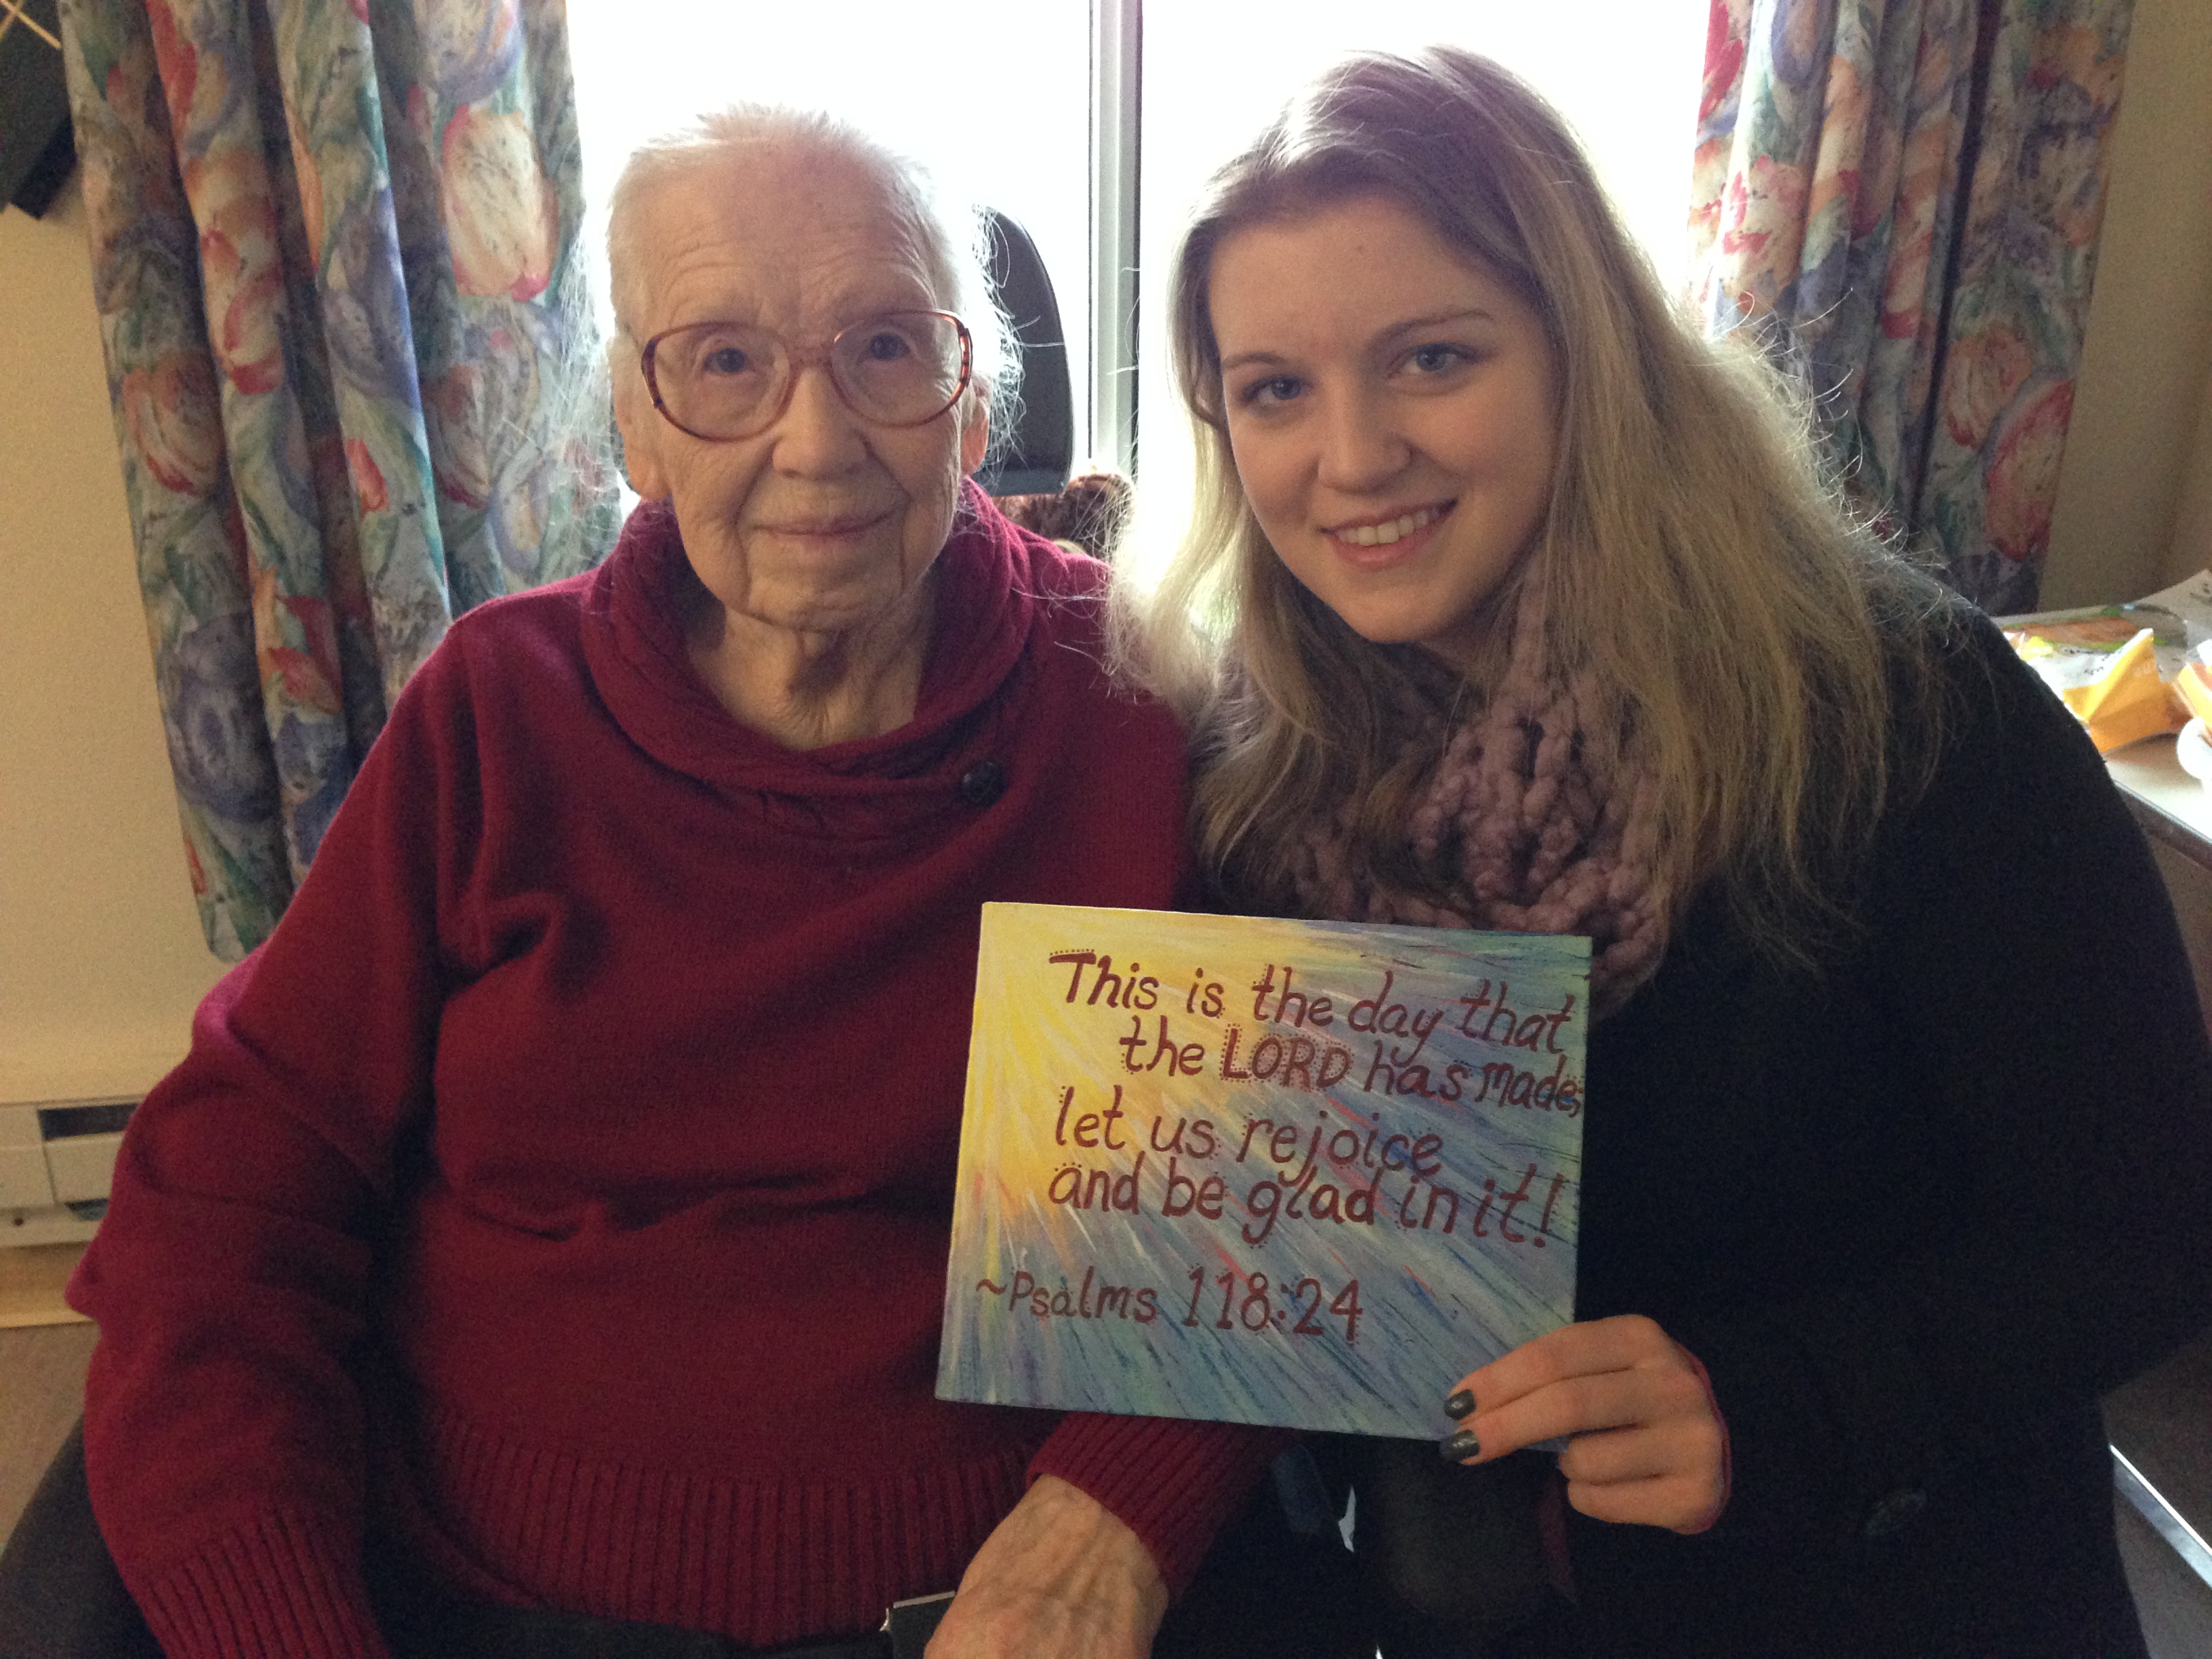 This is the day that
the LORD has made,
let us rejoice
and be glad in it!
~Psalms 118:24